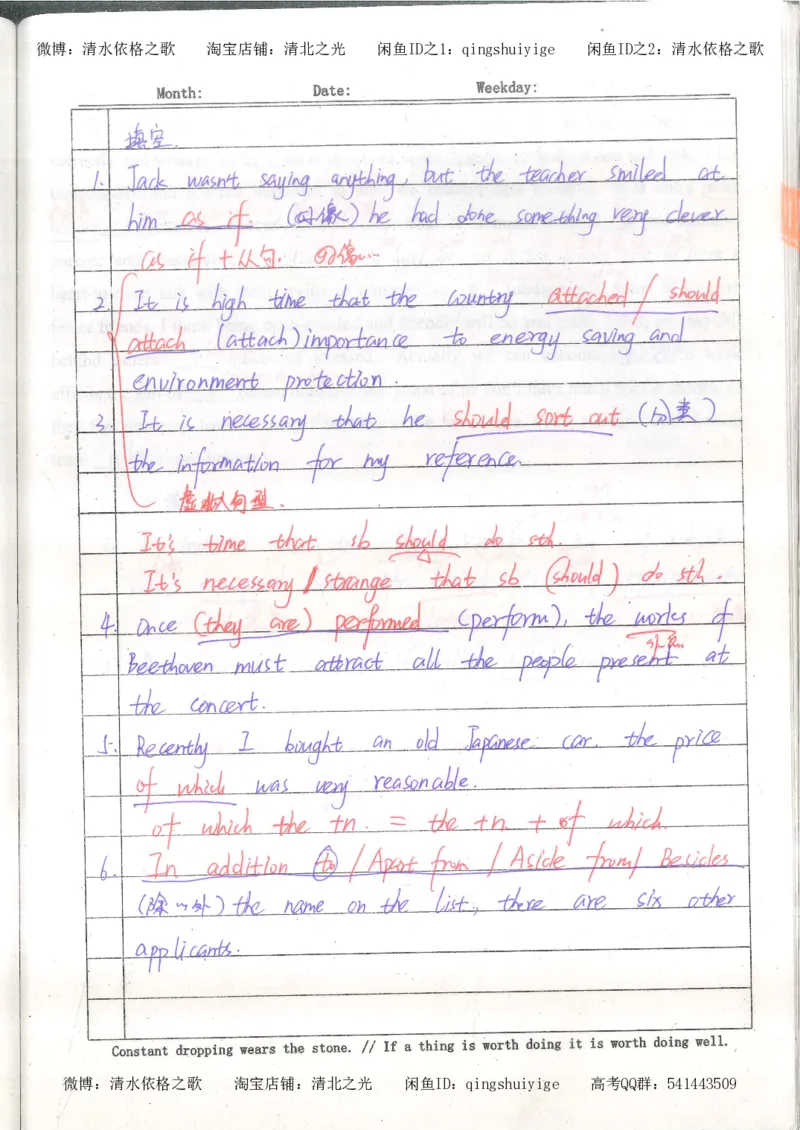 微博：清水依格之歌 淘宝店铺：清北之光 闲鱼ID之1：qingshuiyige 闲鱼ID之2：清水依格之歌
Month: Date: Weekday:
填空.
1. Jack wasn't saying anything, but the teacher smiled at
him as if (好像) he had done something very clever
as if + 从句. 好像…
2. It is high time that the country attached / should
attach (attach) importance to energy saving and
environment protection.
3. It is necessary that he should sort out (分类)
the information for my reference.
虚拟句型.
It's time that sb should do sth.
It's necessary / strange that sb (should) do sth.
4. Once (they are) performed (perform), the works of
Beethoven must attract all the people present at
the concert.
5. Recently I bought an old Japanese car. the price
of which was very reasonable.
of which the +n. = the +n. + of which
6. In addition to / Apart from / Aside from / Besides
(除…外) the name on the list, there are six other
applicants.
Constant dropping wears the stone. // If a thing is worth doing it is worth doing well.
微博：清水依格之歌 淘宝店铺：清北之光 闲鱼ID：qingshuiyige 高考QQ群：541443509